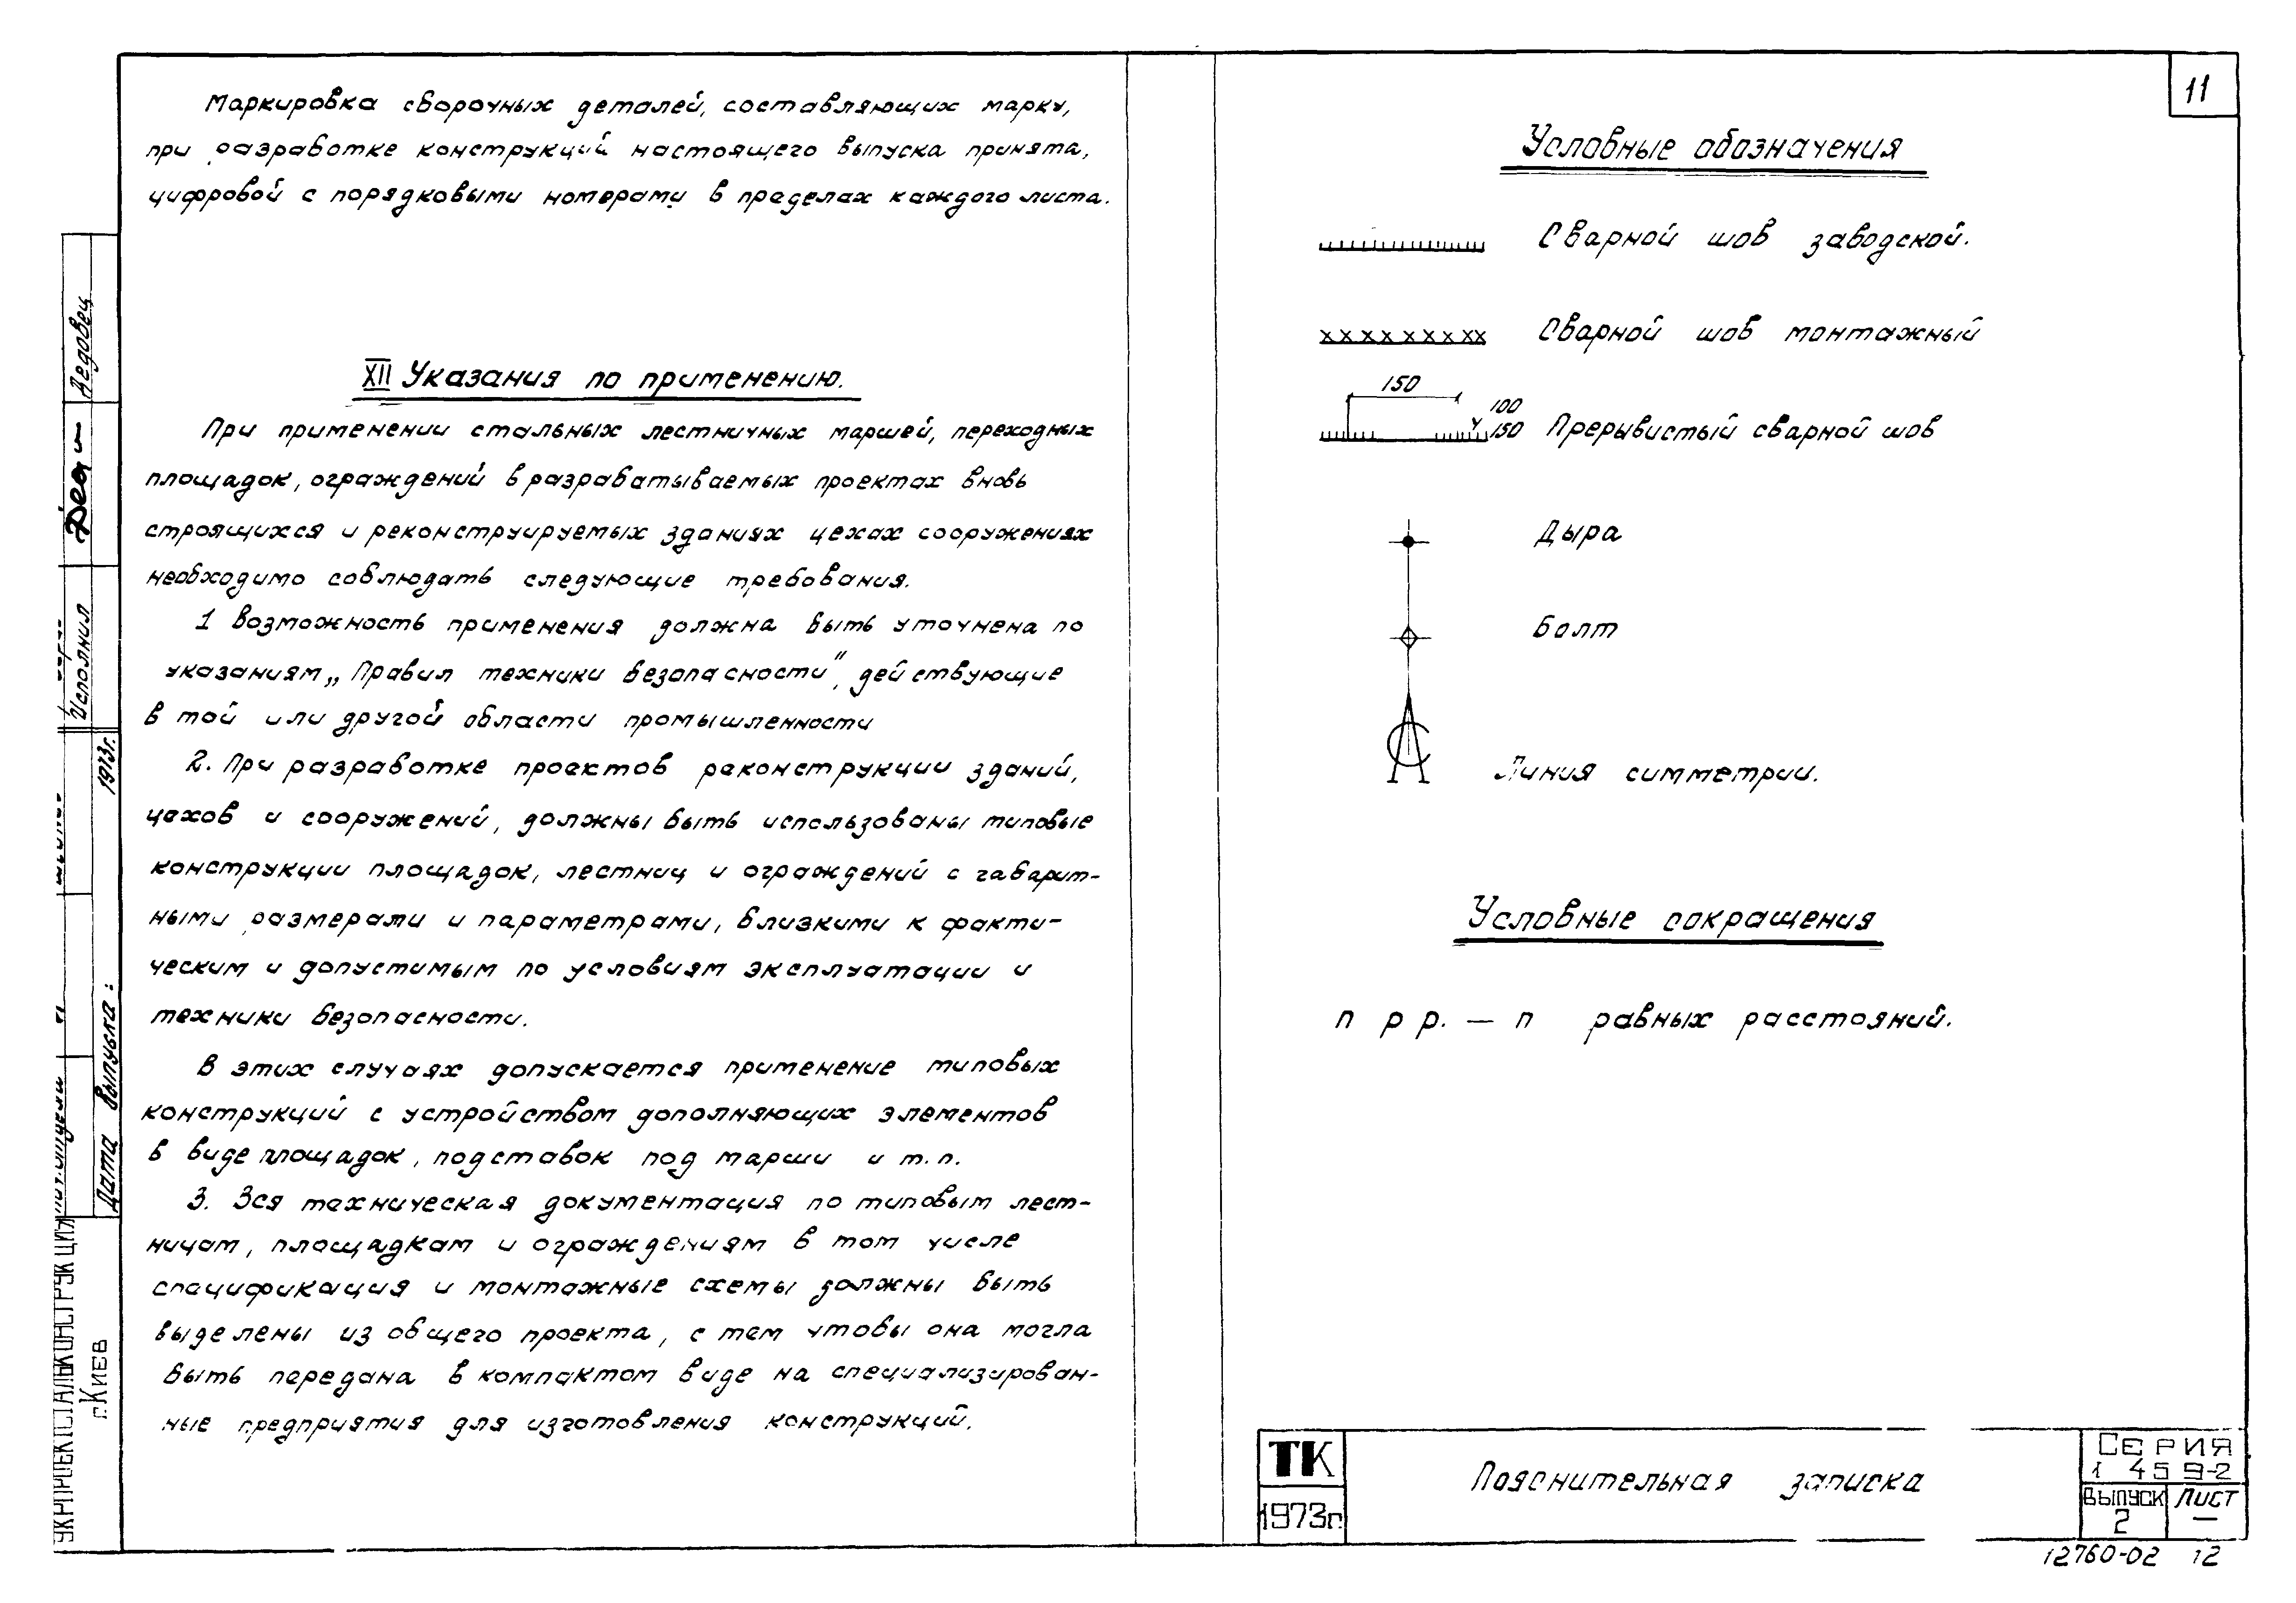 Маркировка сборочных деталей, составляющих марку,
при разработке конструкций настоящего выпуска принята,
цифровой с порядковыми номерами в пределах каждого листа.
XII Указания по применению.
При применении стальных лестничных маршей, переходных
площадок, ограждений в разрабатываемых проектах вновь
строящихся и реконструируемых зданиях цехах сооружениях
необходимо соблюдать следующие требования.
1 Возможность применения должна быть уточнена по
указаниям „Правил техники безопасности", действующие
в той или другой области промышленности
2. При разработке проектов реконструкции зданий,
цехов и сооружений, должны быть использованы типовые
конструкции площадок, лестниц и ограждений с габарит-
ными размерами и параметрами, близкими к факти-
ческим и допустимым по условиям эксплуатации и
техники безопасности.
В этих случаях допускается применение типовых
конструкций с устройством дополняющих элементов
в виде площадок, подставок под марши и т.п.
3. Вся техническая документация по типовым лест-
ницам, площадкам и ограждениям в том числе
спецификация и монтажные схемы должны быть
выделены из общего проекта, с тем чтобы она могла
быть передана в компактом виде на специализирован-
ные предприятия для изготовления конструкций.
11
Условные обозначения
Сварной шов заводской.
Сварной шов монтажный
150
100
150
Прерывистый сварной шов
Дыра
Болт
Линия симметрии.
Условные сокращения
п р р. — п равных расстояний.
ТК
1973г.
Пояснительная записка
Серия
1 459-2
Выпуск
2
Лист
—
12760-02 12
Дедовец
Исполнил
1973г.
Дата выпуска:
УКРПРОЕКТСТАЛЬКОНСТРУКЦИЯ
г.Киев